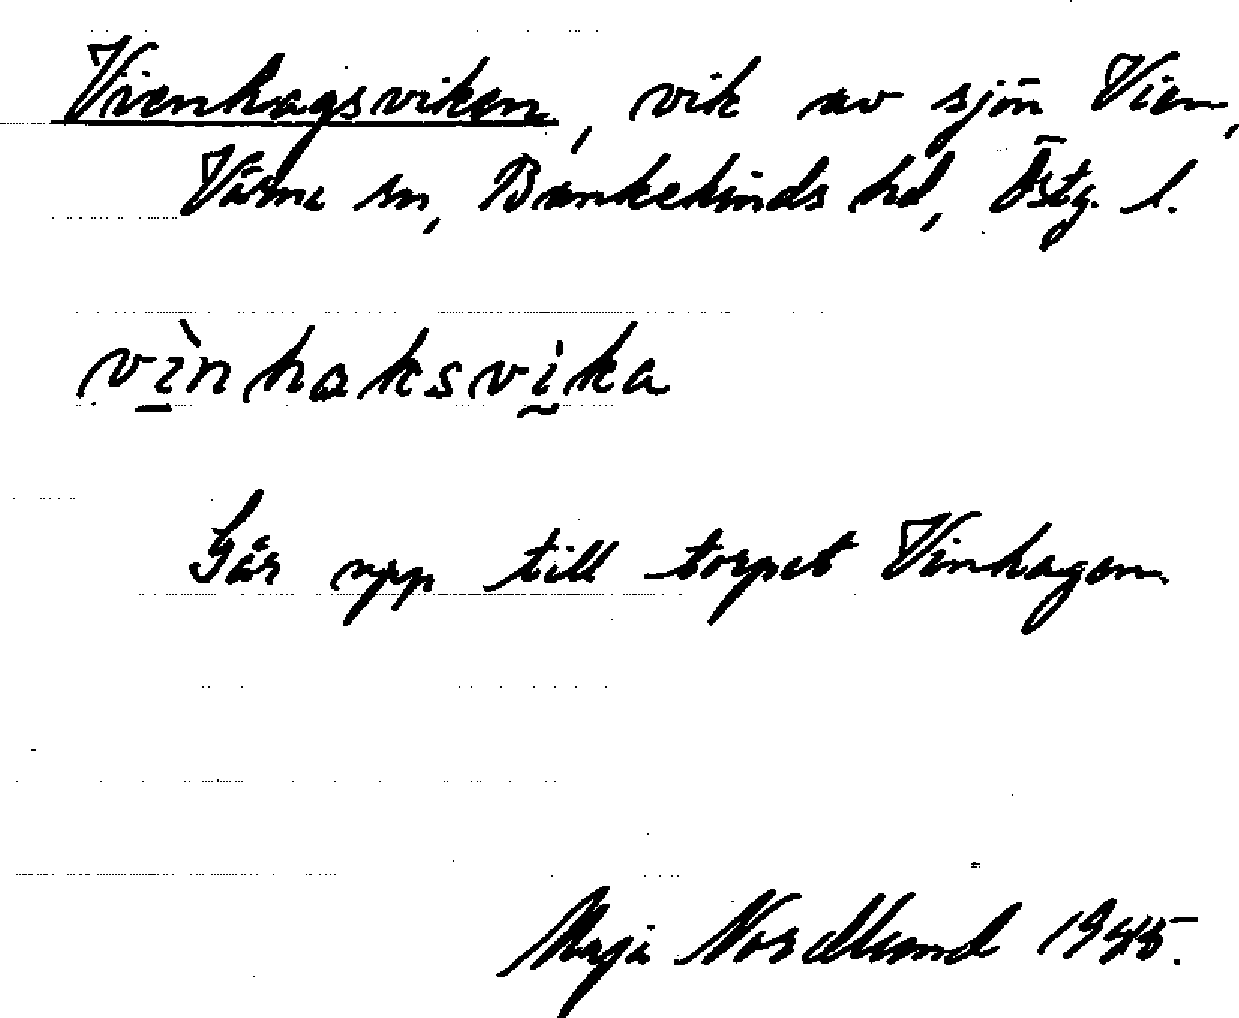 Vienhagsviken, vik av sjön Vien,
Vårne sn, Bankekinds hd, Östg. l.
vìnhaksvika
Går upp till torpet Vinhagen
Maja Nordlund 1945.